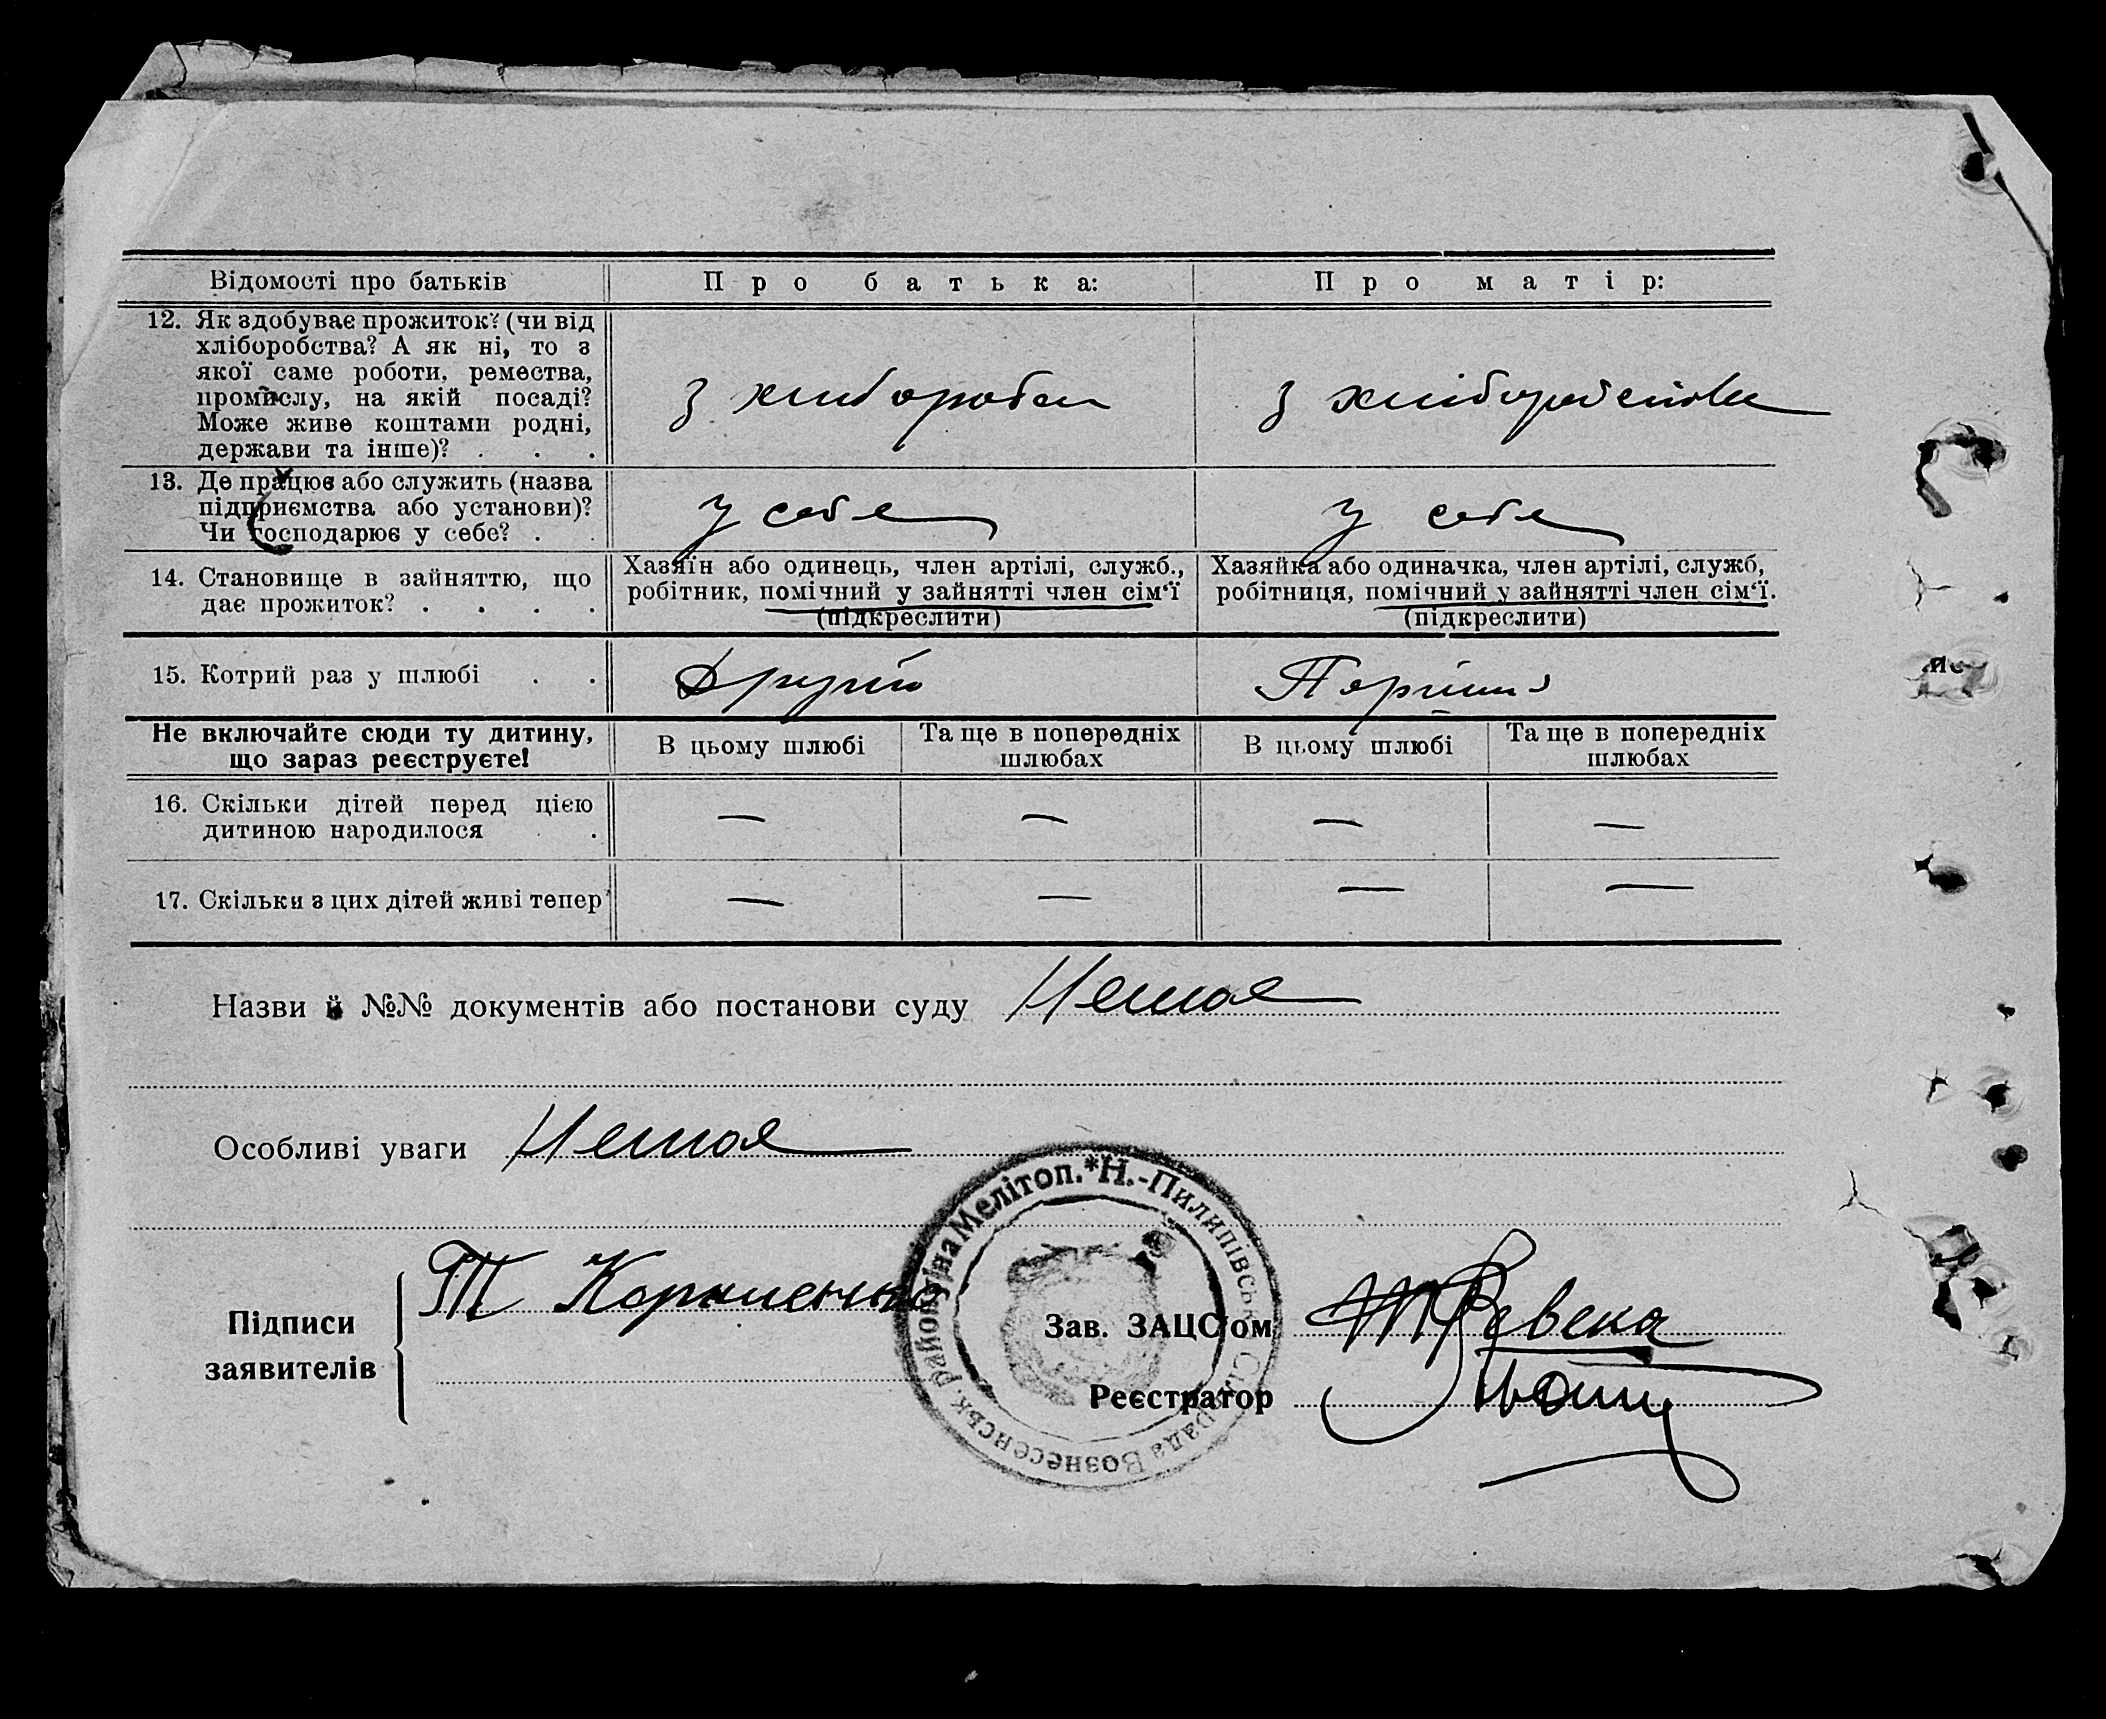 Відомості про батьків
Про батька:
Про матір:
12. Як здобуває прожиток? (чи від
хліборобства? А як ні, то з
якої саме роботи, ремества,
промислу, на якій посаді?
Може живе коштами родні,
держави та інше)? . . .
з
з
13. Де працює або служить (назва
підприємства або установи)?
Чи господарює у себе? . .
у себе
у себе
14. Становище в зайняттю, що
дає прожиток? . . . .
Хазяїн або одинець, член артілі, служб.,
робітник, помічний у зайнятті член сім‘ї
(підкреслити)
Хазяйка або одиначка, член артілі, служб,
робітниця, помічний у зайнятті член сім‘ї.
(підкреслити)
15. Котрий раз у шлюбі . .
Другий
Не включайте сюди ту дитину,
що зараз реєструєте!
В цьому шлюбі
Та ще в попередніх
шлюбах
В цьому шлюбі
Та ще в попередніх
шлюбах
16. Скільки дітей перед цією
дитиною народилося . .
— — — —
17. Скільки з цих дітей живі тепер
— — — —
Назви й №№ документів або постанови суду Немає
Особливі уваги Немає
Районуїна Мелітоп. * Н.-Пилипівськ Сільрада Вознесенськ.
Підписи
заявителів
Т Корниенко
Зав. ЗАЦС'ом
Реєстратор